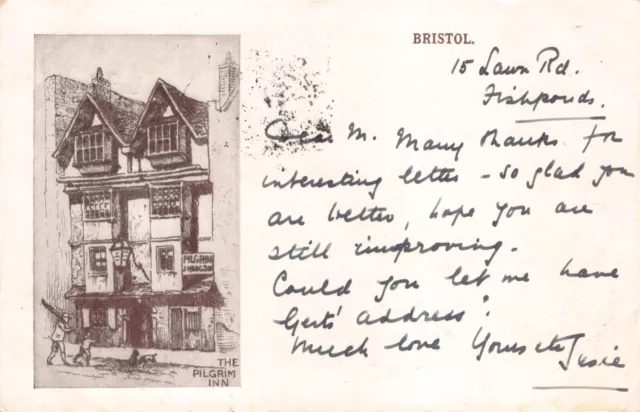 BRISTOL.
15 Lawn Rd.
Fishponds.
Dear M. Many thanks for
interesting letter - so glad you
are better, hope you are
still improving.
Could you let me have
Gert's address?
Much love Yours etc
PILGRIM
THE
PILGRIM
INN